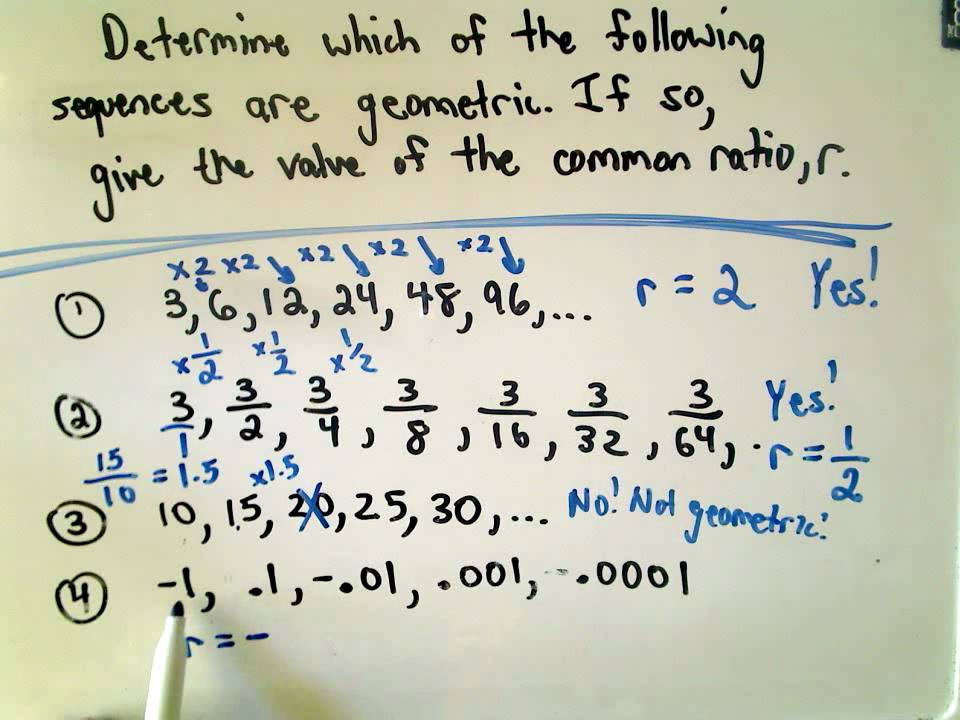 Determine which of the following
sequences are geometric. If so,
give the value of the common ratio, r.
×2 ×2 ×2 ×2 ×2
① 3, 6, 12, 24, 48, 96, ... r = 2 Yes!
×1/2 ×1/2 ×1/2
② 3/1, 3/2, 3/4, 3/8, 3/16, 3/32, 3/64, . Yes! r = 1/2
15/10 = 1.5 ×1.5
③ 10, 15, 20, 25, 30, ... No! Not geometric!
④ -1, .1, -.01, .001, -.0001
r = -